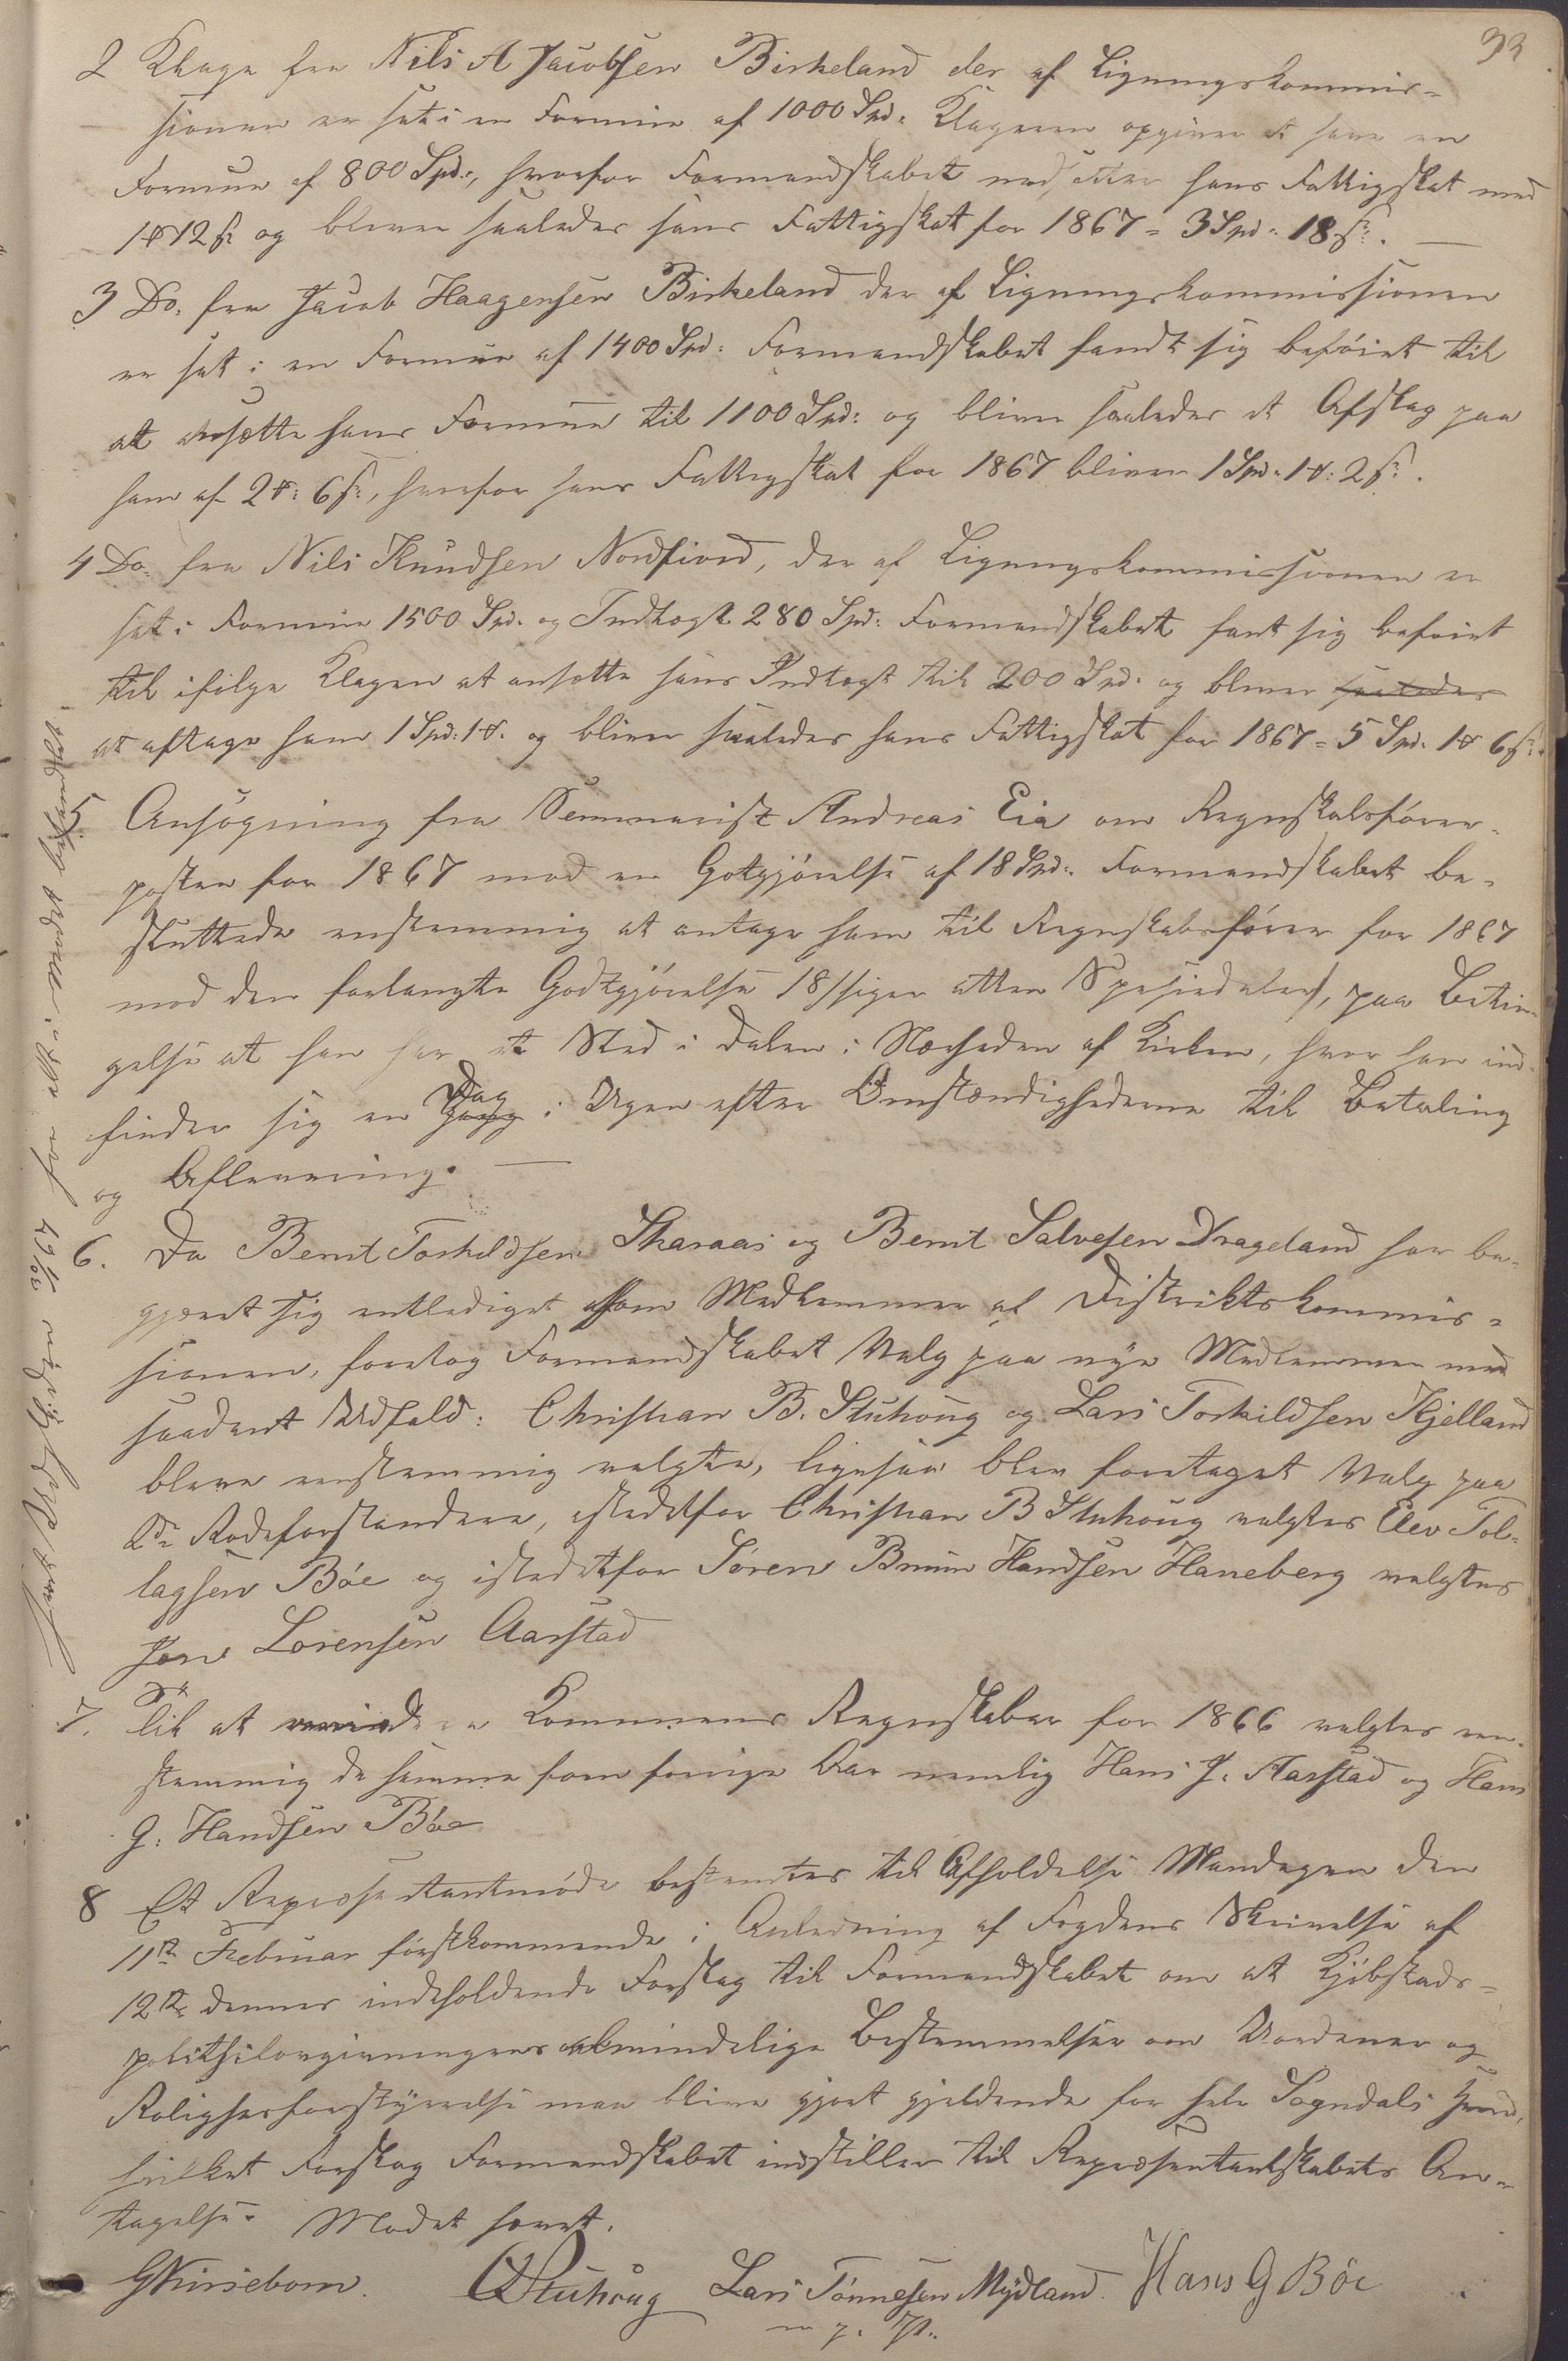 93
2 Klage fra Nils A Jacobsen Birkeland der af Ligningskommis-
sionen er sat i en Formue af 1000 Spd. Klageren opgiver at have en
Formue af 800 Spd., hvorfor Formandskabet nedsætter hans Fattigskat med
1 ₰ 12 ß og bliver saaledes hans Fattigskat for 1867 = 3 Spd. 18 ß. —
3 Do. fra Jacob Haagensen Birkeland der af Ligningskommissionen
er sat i en Formue af 1400 Spd: Formandskabet fandt sig beføiet til
at ansætte hans Formue til 1100 Spd: og bliver saaledes et Afslag paa
ham af 2 ₰: 6 ß:, hvorfor hans Fattigskat for 1867 bliver 1 Spd. 1 ₰: 2 ß.
4 Do. fra Nils Knudsen Nordfiord, der af Ligningskommissionen er
sat i Formue 1500 Spd. og Indtægt 280 Spd: Formandskabet fant sig beføiet
til ifølge Klagen at ansætte hans Indtægt til 200 Spd. og bliver saaledes
at aftage ham 1 Spd: 1 ₰. og bliver saaledes hans Fattigskat for 1867 = 5 Spd. 1 ₰ 6 ß.
5. Ansøgning fra Seminarist Andreas Eia om Regnskabsfører-
posten for 1867 mod en Gotgjørelse af 18 Spd. Formandskabet be-
sluttede enstemmig at antage ham til Regnskabsfører for 1867
mod den forlangte Godtgjørelse 18/siger atten Spesiedaler/, paa Betin-
gelse at han har et Sted i Dalen i Nærheden af Kirken, hvor han ind-
finder sig en Gang Dag i Ugen efter Omstændighederne til Betaling
og Aflevering. —
6. Da Bernt Torkildsen Skaraas og Bernt Salvesen Drageland har be-
gjæret sig entlediget som Medlemmer af Distriktskommis-
sionen, foretog Formandskabet Valg paa nye Medlemmer med
saadant Udfald: Christian B. Stuhoug og Lars Torkildsen Kjelland
bleve enstemmig valgte, ligesaa blev foretaget Valg paa
2de Rodeforstandere, istedetfor Christian B Stuhoug valgtes Elev Tol-
lagsen Bøe og istedetfor Søren Bruun Handsen Haneberg valgtes
Jens Lorensen Aarstad
7. Til at revidere Kommunens Regnskaber for 1866 valgtes een-
stemmig de samme som forrige Aar nemlig Hans J. Aarstad og Hans
G. Handsen Bøe
8 Et Repræsentantmøde bestemtes til Afholdelse Mandagen den
11te Februar førstkommende i Anledning af Fogdens Skrivelse af
12te dennes indeholdende Forslag til Formandskabet om at Kjøbstads-
politilovgivningens almindelige Bestemmelser om Uordener og
Rolighedsforstyrrelse maa blive gjort gjeldende for hele Sogndals
hvilket Forslag Formandskabet indstiller til Repræsentantskabets An-
tagelse. Mødet hævet.
C Stuhoug Lars Tønnesen Mydland Hans G Bøe
m. p. P.